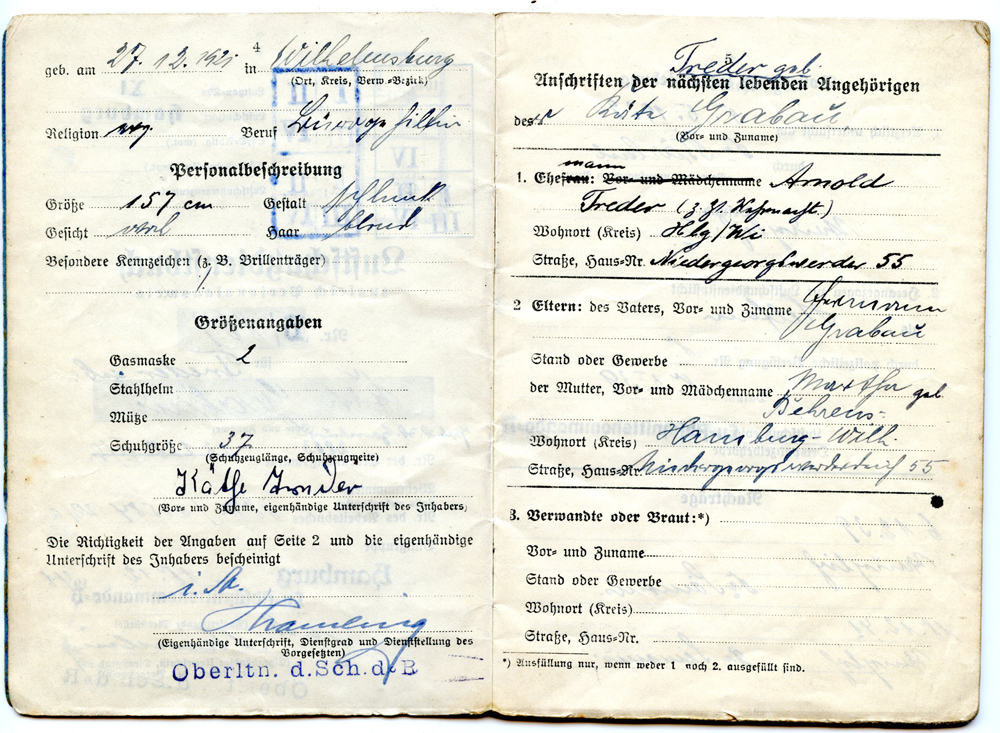 4
geb. am 27. 12. 1921 in Wilhelmsburg
(Ort, Kreis, Verw.-Bezirk)
Religion evg. Beruf
Personalbeschreibung
Größe 157 cm Gestalt schlank
Gesicht oval Haar blond
Besondere Kennzeichen (z. B. Brillenträger)
Größenangaben
Gasmaske 2
Stahlhelm
Mütze
Schuhgröße 37
(Schuhzeuglänge, Schuhzeugweite)
Käthe Treder
(Vor- und Zuname, eigenhändige Unterschrift des Inhabers)
Die Richtigkeit der Angaben auf Seite 2 und die eigenhändige
Unterschrift des Inhabers bescheinigt
i. A.
(Eigenhändige Unterschrift, Dienstgrad und Dienststellung des
Vorgesetzten)
Oberltn. d. Sch. d. R
5
Treder geb.
Anschriften der nächsten lebenden Angehörigen
der Käte Grabau
(Vor- und Zuname)
mann
1. Ehefrau: Vor- und Mädchenname Arnold
Treder (z. Zt. Wehrmacht.)
Wohnort (Kreis) Hbg/Wi
Straße, Haus-Nr. Niedergeorgswerder 55
2 Eltern: des Vaters, Vor- und Zuname Hermann
Grabau
Stand oder Gewerbe
der Mutter, Vor- und Mädchenname Martha geb.
Behrens
Wohnort (Kreis) Hamburg-Wilh.
Straße, Haus-Nr. Niedergeorgswerderdeich 55
3. Verwandte oder Braut:*)
Vor- und Zuname
Stand oder Gewerbe
Wohnort (Kreis)
Straße, Haus-Nr.
*) Ausfüllung nur, wenn weder 1 noch 2. ausgefüllt sind.